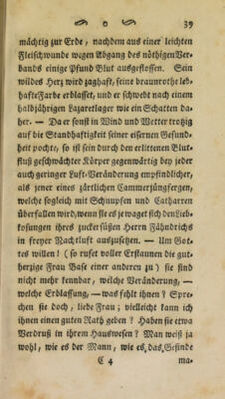 o 39
mächtig zur Erde, nachdem aus einer leichten
Fleischwunde wegen Abgang des nöthigen Ver-
bands einige Pfund Blut ausgeflossen. Sein
wildes Herz wird zaghaft, seine braunrothe leb-
hafte Farbe erblasset, und er schwebt nach einem
halbjährigen Lazaretlager wie ein Schatten da-
her. — Da er sonst in Wind und Wetter trotzig
auf die Standhaftigkeit seiner eisernen Gesund-
heit pochte, so ist sein durch den erlittenen Blut-
fluß geschwächter Körper gegenwärtig bey jeder
auch geringer Luft-Veränderung empfindlicher,
als jener eines zärtlichen Cammerjüngfergen,
welche sogleich mit Schnupfen und Catharren
überfallen wird, wenn sie es je waget sich den Lieb-
kosungen ihres zuckersüßen Herrn Fähndrichs
in freyer Nachtluft auszusetzen. — Um Got-
tes willen! (so rufet voller Erstaunen die gut-
herzige Frau Base einer anderen zu) sie sind
nicht mehr kennbar, welche Veränderung, —
welche Erblassung, — was fehlt ihnen? Spre-
chen sie doch, liebe Frau; vielleicht kann ich
ihnen einen guten Rath geben? Haben sie etwa
Verdruß in ihrem Hauswesen? Man weiß ja
wohl, wie es der Mann, wie es das Gesinde
C 4 ma-